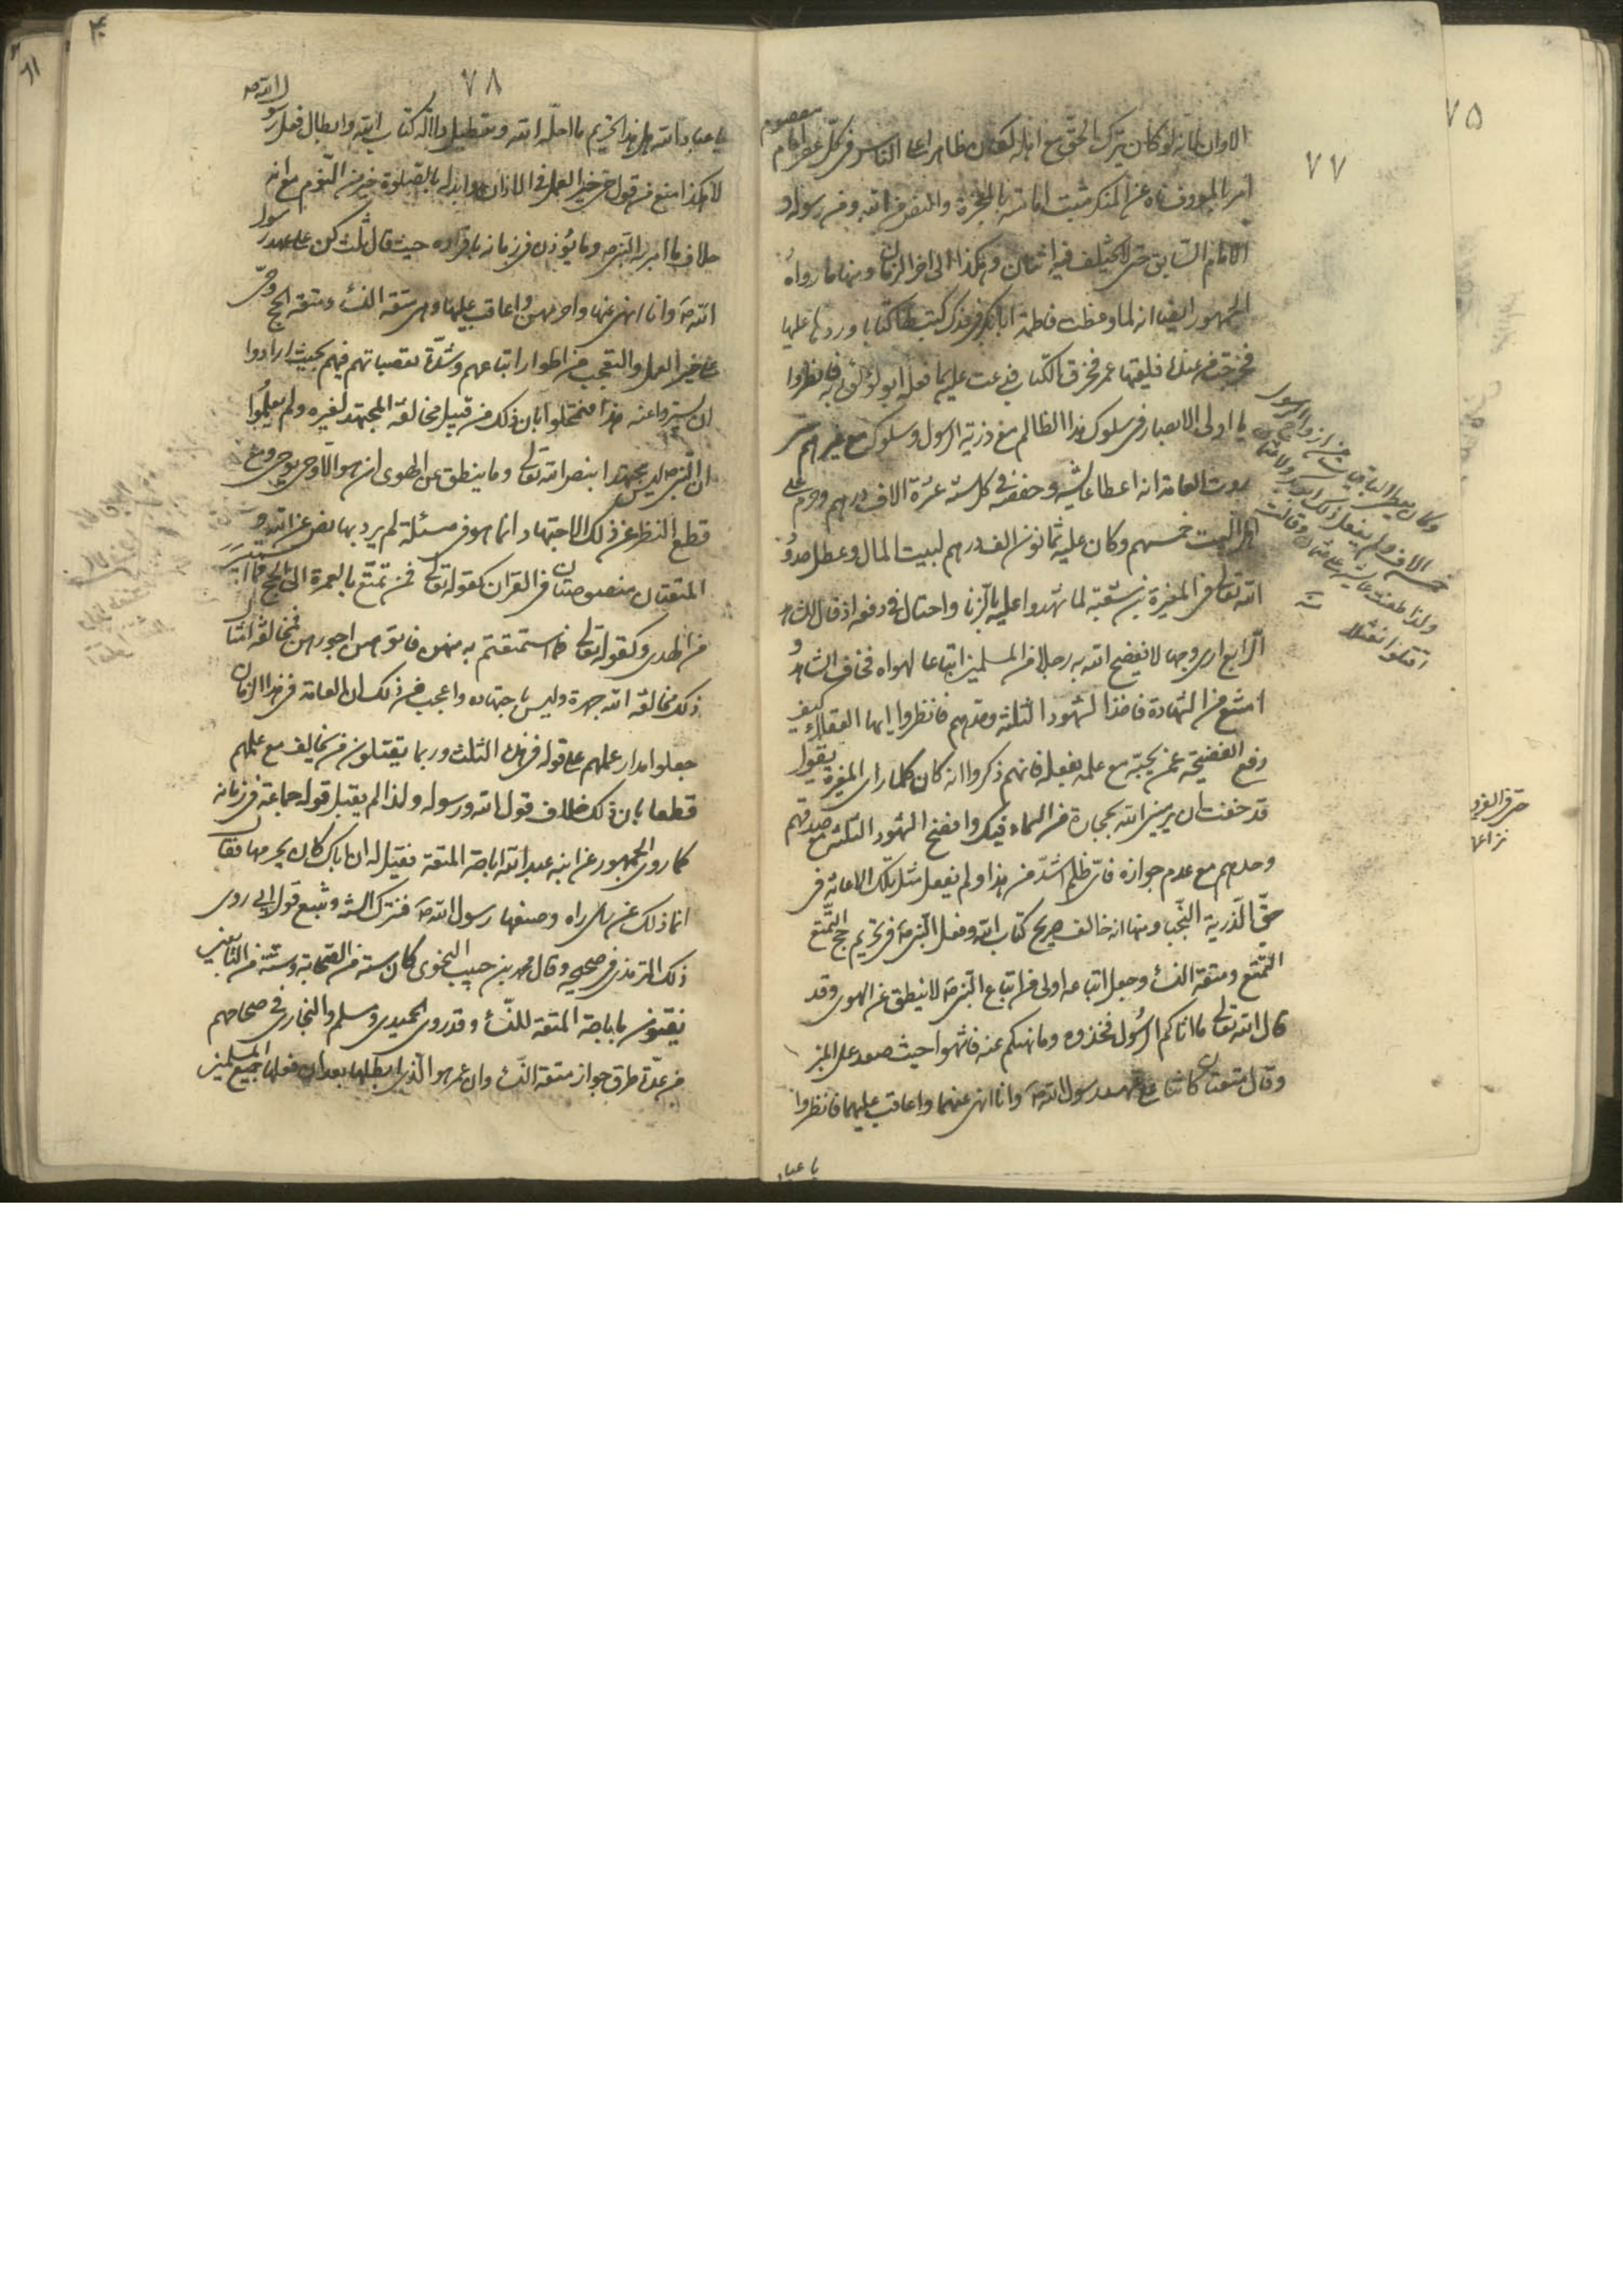 ٧٧
الاوان لانه لو كان يترك الحق مع اهله لكان ظاهرا على الناس فى كل عصر امام معصوم
امر بالمعروف ناه عن المنكر مثبت امامته بالمعجزة والنص من الله ومن رسوله و
الامام السابق حتى لا يختلف فيه اثنان وهكذا الى اخر الزمان ومنها ما رواه
الجمهور ايضا انه لما وعظت فاطمة ابا بكر فى فدك كتب لها كتابا وردها عليها
فخرجت من عنده فلقيها عمر فخرق الكتاب فدعت عليه بما فعله ابو لؤلؤ به فانظروا
يا اولى الابصار فى سلوك هذا الظالم مع ذرية الرسول وسلوكه مع غيرهم حتى
روت العامة انه اعطا عايشه وحفصه فى كل سنة عشرة الاف درهم وحرم على
اهل البيت خمسهم وكان عليه ثمانون الف درهم لبيت المال وعطل حدود
الله تعالى فى المغيرة بن شعبة لما شهدوا عليه بالزنا واحتال فى دفعه اذ قال للشاهد
الرابع ارى وجها لا يفضح الله به رجلا من المسلمين اتباعا لهواه فخاف الشاهد و
امتنع من الشهادة فاخذ الشهود الثلثة وحدهم فانظروا ايها العقلاء كيف
دفع الفضيحة عمن يحبه مع علمه بفعله فانهم ذكروا انه كان كلما راى المغيرة يقول
قد خفت ان يرمينى الله بحجارة من السماء فيك وافضح الشهود الثلث مع صدقهم
وحدهم مع عدم جوازه فاى ظلم اشد من هذا ولم يفعل مثل تلك الاعانة فى
حق الذرية النجبا ومنها انه خالف صريح كتاب الله وفعل النبى ص فى تحريم حج التمتع
التمتع ومتعة النساء وجعل اتباعه اولى من اتباع النبى ص لا ينطق عن الهوى وقد
قال الله تعالى ما اتاكم الرسول فخذوه وما نهيكم عنه فانتهوا حيث صعد على المنبر
وقال متعتان كانتا على عهد رسول الله ص وانا انهى عنهما واعاقب عليهما فانظروا
يا عباد
وكان يعطى الباقيات من ازواج الرسول
خمسة الاف ولم يفعل ذلك ابو بكر ولا عثمان
ولذا طعنت عايشة على عثمان وقالت
اقتلوا نعثلا
٧٥
٧٨
يا عباد الله هل هذا الا تحريم ما احله الله وتعطيل دلالة كتاب الله وابطال فعل رسول الله ص
لا هكذا منع من قول حى على خير العمل فى الاذان وابدله بالصلوة خير من النوم مع انه
خلاف ما امر به النبى ص وما يؤذن فى زمانه باقراره حيث قال ثلث كن على عهد رسول
الله ص وانا انهى عنها واحرمهن واعاقب عليها وهى متعة النساء ومتعة الحج وحى
على خير العمل والتعجب من اطوار اتباعهم وشدة تعصباتهم فيهم بحيث ارادوا
ان يستروا عنه هذا فتمحلوا بان ذلك من قبيل مخالفة المجتهد لغيره ولم يعلموا
ان النبى ص ليس بمجتهد بنص الله تعالى وما ينطق عن الهوى ان هو الا وحى يوحى ومع
قطع النظر عن ذلك الاجتهاد انما هو فى مسئلة لم يرد بها نص عن الله و
المتعتان منصوصتان فى القران كقوله تعالى فمن تمتع بالعمرة الى الحج فما استيسر
من الهدى وكقوله تعالى فما استمتعتم به منهن فاتوهن اجورهن فمخالفة امثال
ذلك مخالفة الله جهرة وليس باجتهاد واعجب من ذلك ان العامة فى هذا الزمان
جعلوا مدار عملهم على قوله فى هذه الثلث وربما يقتلون من يخالف مع علمهم
قطعا بان ذلك خلاف قول الله ورسوله ولذا لم يقبل قوله جماعة فى زمانه
كما روى الجمهور عن ابنه عبد الله اباحة المتعة فقيل له ان اباك كان يحرمها فقال
انما ذلك عن راى راه وصنفها رسول الله ص فنترك السنة ونتبع قول ابى روى
ذلك الترمذى فى صحيحه وقال محمد بن حبيب النحوى كان ستة من الصحابة وستة من التابعين
يفتون باباحة المتعة للنساء وقد روى الحميدى ومسلم والبخارى فى صحاحهم
من عدة طرق جواز متعة النساء وان عمر هو الذى ابطلها بعد ان فعلها جميع المسلمين